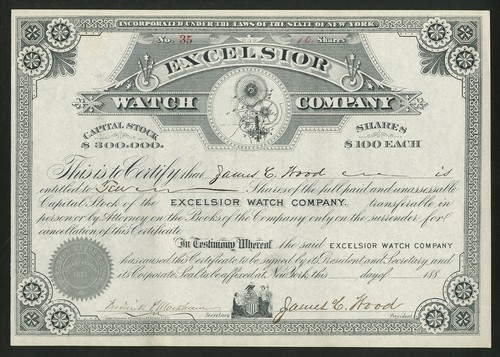 INCORPORATED UNDER THE LAWS OF THE STATE OF NEW YORK.
No. 35 10 Shares
EXCELSIOR
WATCH COMPANY
CAPITAL STOCK SHARES
$ 300.000. $ 100 EACH
This is to Certify that James C. Hood is
entitled to Ten Shares of the full paid and unassessable
Capital Stock of the EXCELSIOR WATCH COMPANY, transferable in
person or by Attorney on the Books of the Company only on the surrender for
cancellation of this Certificate.
In Testimony Whereof the said EXCELSIOR WATCH COMPANY
has caused this Certificate to be signed by its President and Secretary, and
its Corporate Seal to be affixed at New York, this day of 188
James C. Hood
President